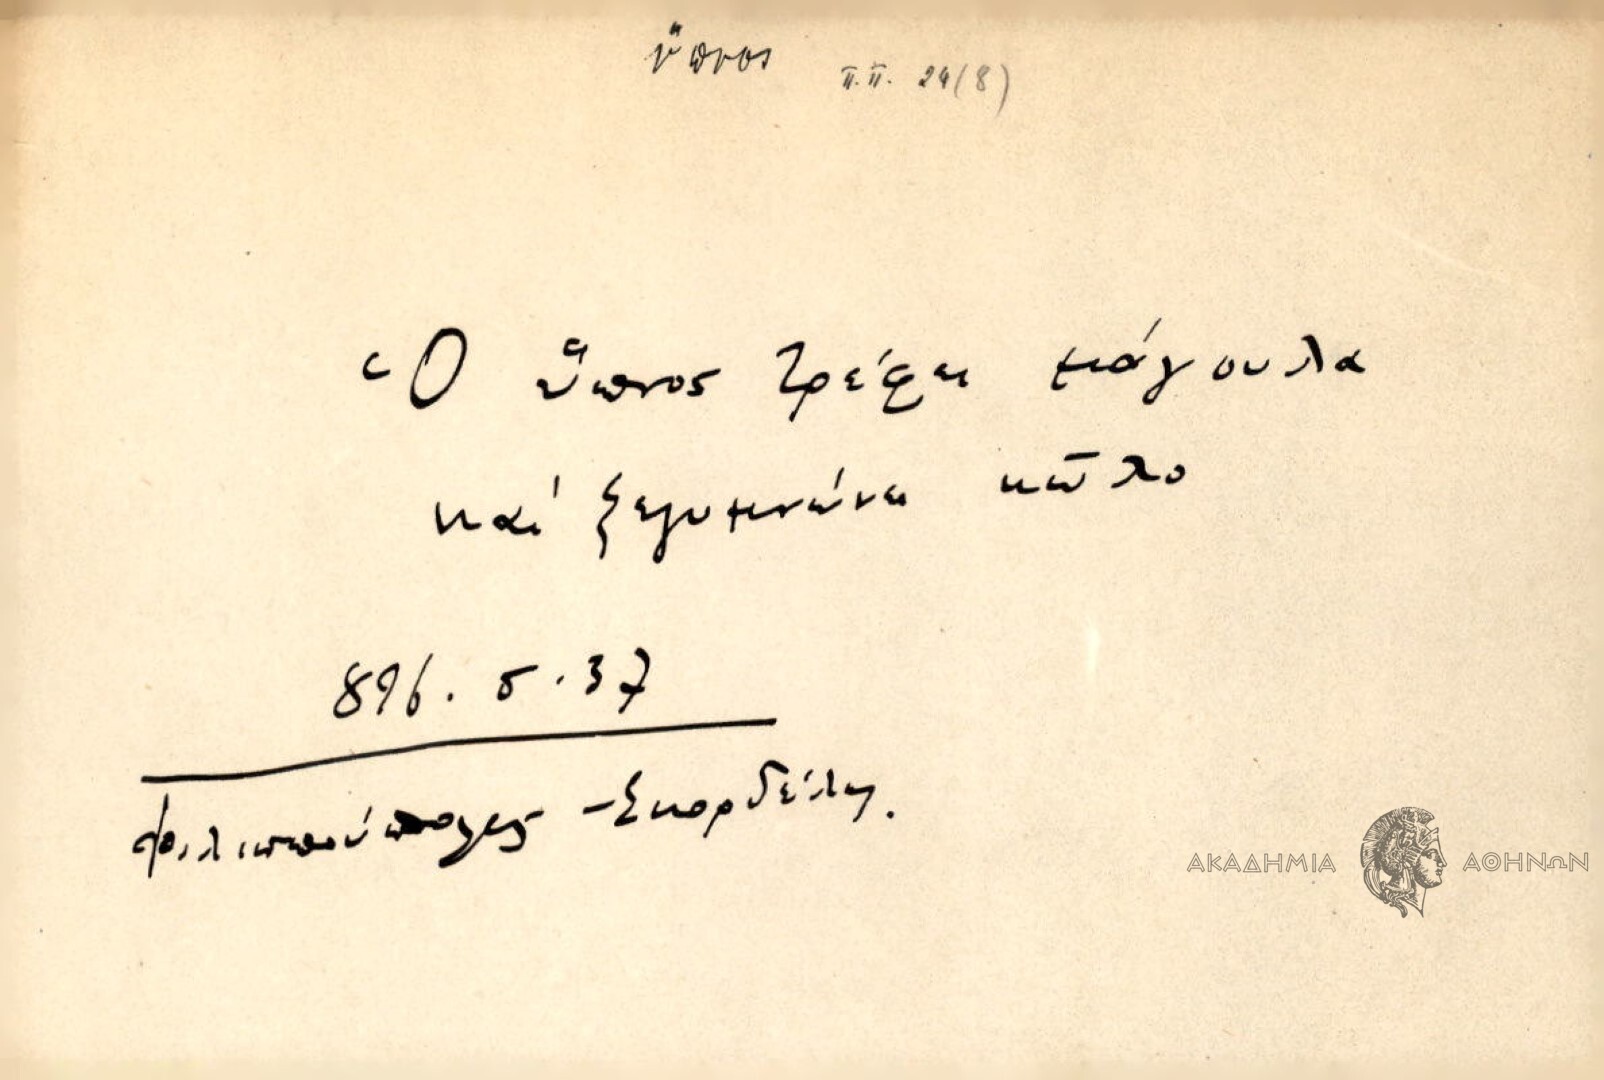 ὕπνος Π.Π. 24(8)
Ὁ ὕπνος τρέφει μάγουλα
καί ξεγυμνώνει κῶλο
896. 5. 37
Φιλιππούπολις - Σκορδέλη.
ΑΚΑΔΗΜΙΑ ΑΘΗΝΩΝ